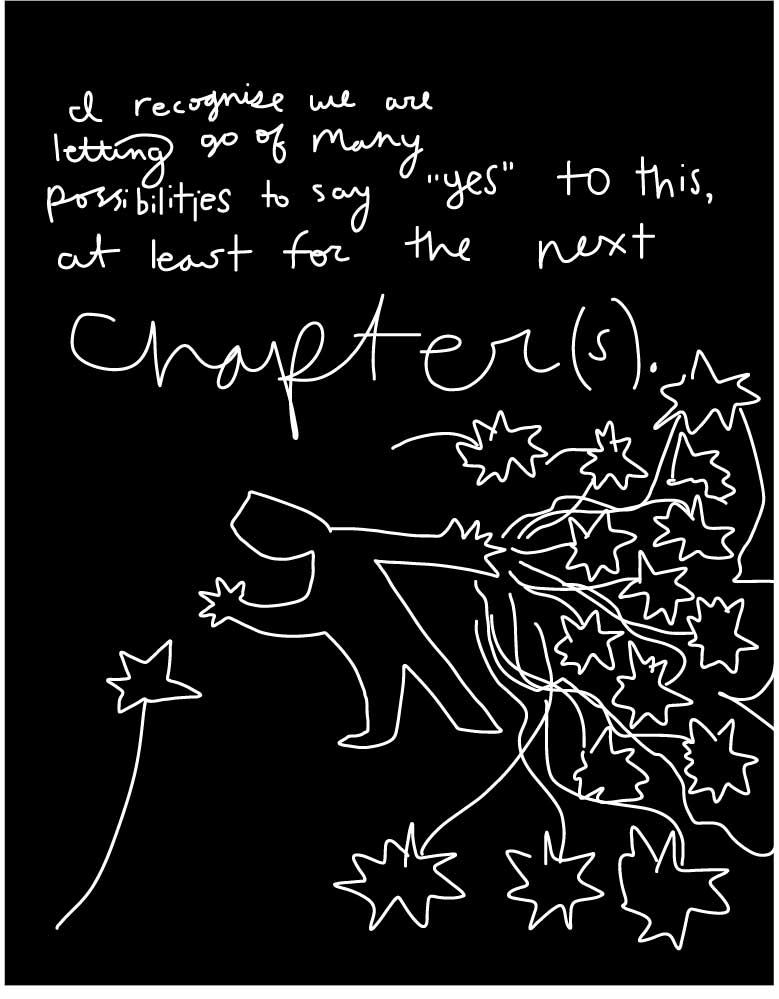 I recognise we are
letting go of many
possibilities to say "yes" to this,
at least for the next
Chapter(s).